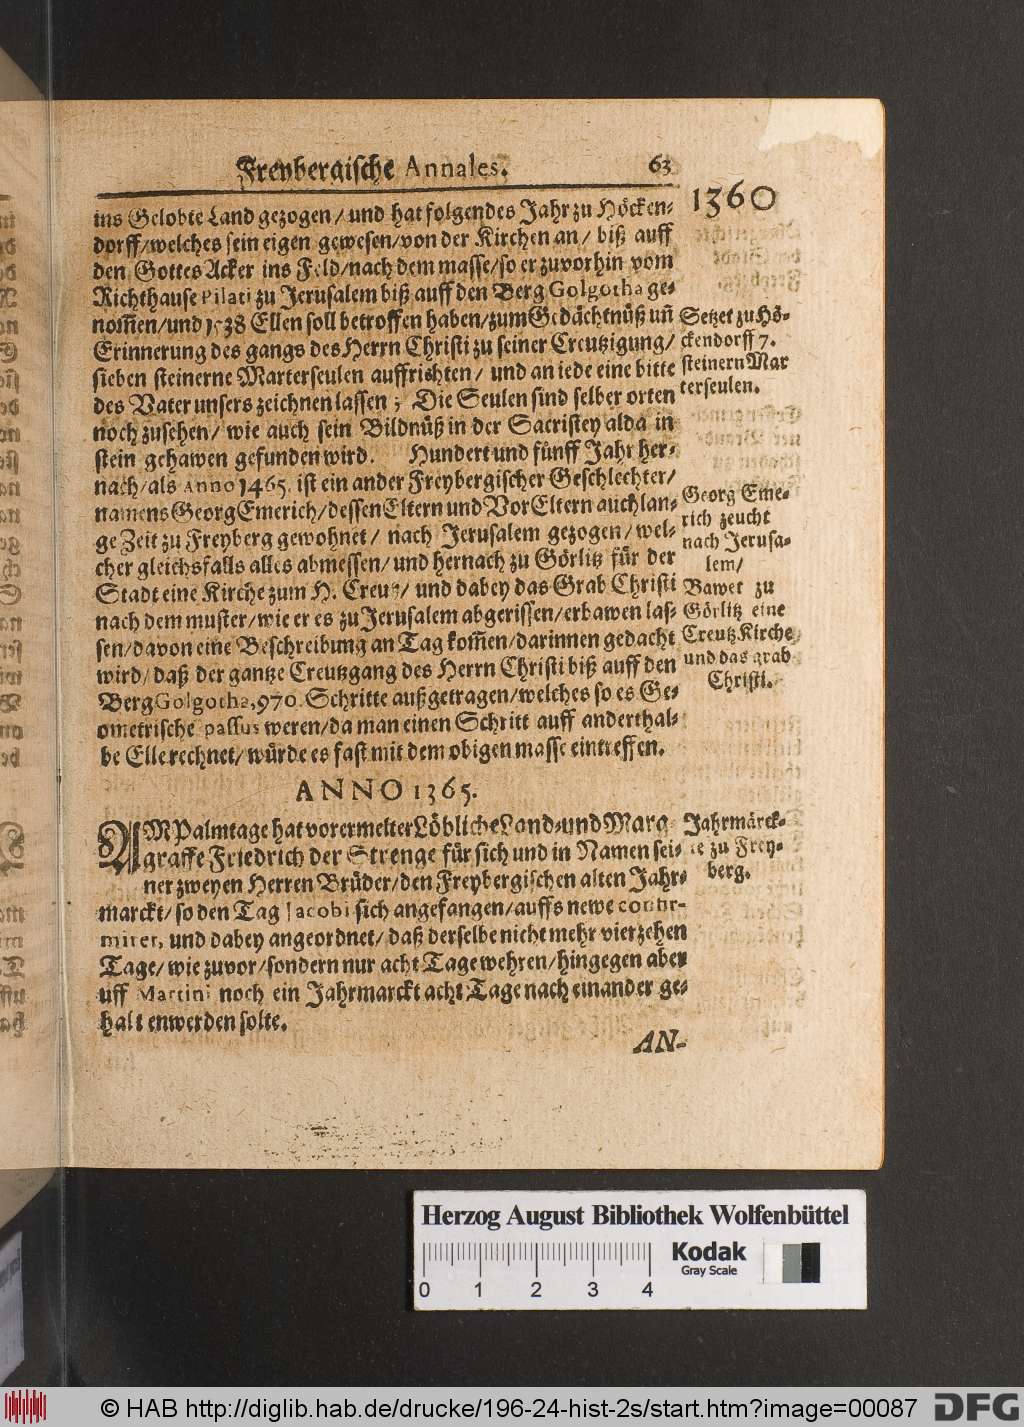 Freybergische Annales. 63
1360
ins Gelobte Land gezogen/ und hat folgendes Jahr zu Höcken-
dorff/ welches sein eigen gewesen/ von der Kirchen an/ biß auff
den Gottes Acker ins Feld/ nach dem masse/ so er zuvorhin vom
Richthause Pilati zu Jerusalem biß auff den Berg Golgotha ge-
nom̃en/ und 1538 Ellen soll betroffen haben/ zum Gedächtnüß uñ
Erinnerung des gangs des Herrn Christi zu seiner Creutzigung/
sieben steinerne Marterseulen auffrichten/ und an iede eine bitte
des Vater unsers zeichnen lassen; Die Seulen sind selber orten
noch zusehen/ wie auch sein Bildnüß in der Sacristey alda in
stein gehawen gefunden wird. Hundert und fünff Jahr her-
nach/ als Anno 1465. ist ein ander Freybergischer Geschlechter/
namens Georg Emerich/ dessen Eltern und Vor Eltern auch lan-
ge Zeit zu Freyberg gewohnet/ nach Jerusalem gezogen/ wel-
cher gleichsfalls alles abmessen/ und hernach zu Görlitz für der
Stadt eine Kirche zum H. Creutz/ und dabey das Grab Christi
nach dem muster/ wie er es zu Jerusalem abgerissen/ erbawen las-
sen/ davon eine Beschreibung an Tag kom̃en/ darinnen gedacht
wird/ daß der gantze Creutzgang des Herrn Christi biß auff den
Berg Golgotha, 970. Schritte außgetragen/ welches so es Ge-
ometrische passus weren/ da man einen Schritt auff anderthal-
be Elle rechnet/ würde es fast mit dem obigen masse eintreffen.
Setzet zu Hö-
ckendorff 7.
steinern Mar
terseulen.
Georg Eme-
rich zeucht
nach Jerusa-
lem/
Bawet zu
Görlitz eine
Creutz Kirche
und das grab
Christi.
ANNO 1365.
AM Palmtage hat vorermelter Löbliche Land- und Marg-
graffe Friedrich der Strenge für sich und in Namen sei-
ner zweyen Herren Brüder/ den Freybergischen alten Jahr-
marckt/ so den Tag Jacobi sich angefangen/ auffs newe confir-
miret, und dabey angeordnet/ daß derselbe nicht mehr vierzehen
Tage/ wie zuvor/ sondern nur acht Tage wehren/ hingegen aber
uff Martini noch ein Jahrmarckt acht Tage nach einander ge-
halten werden solte.
Jahrmärck-
te zu Frey-
berg.
AN-
Herzog August Bibliothek Wolfenbüttel
0 1 2 3 4
Kodak
Gray Scale
© HAB http://diglib.hab.de/drucke/196-24-hist-2s/start.htm?image=00087
DFG